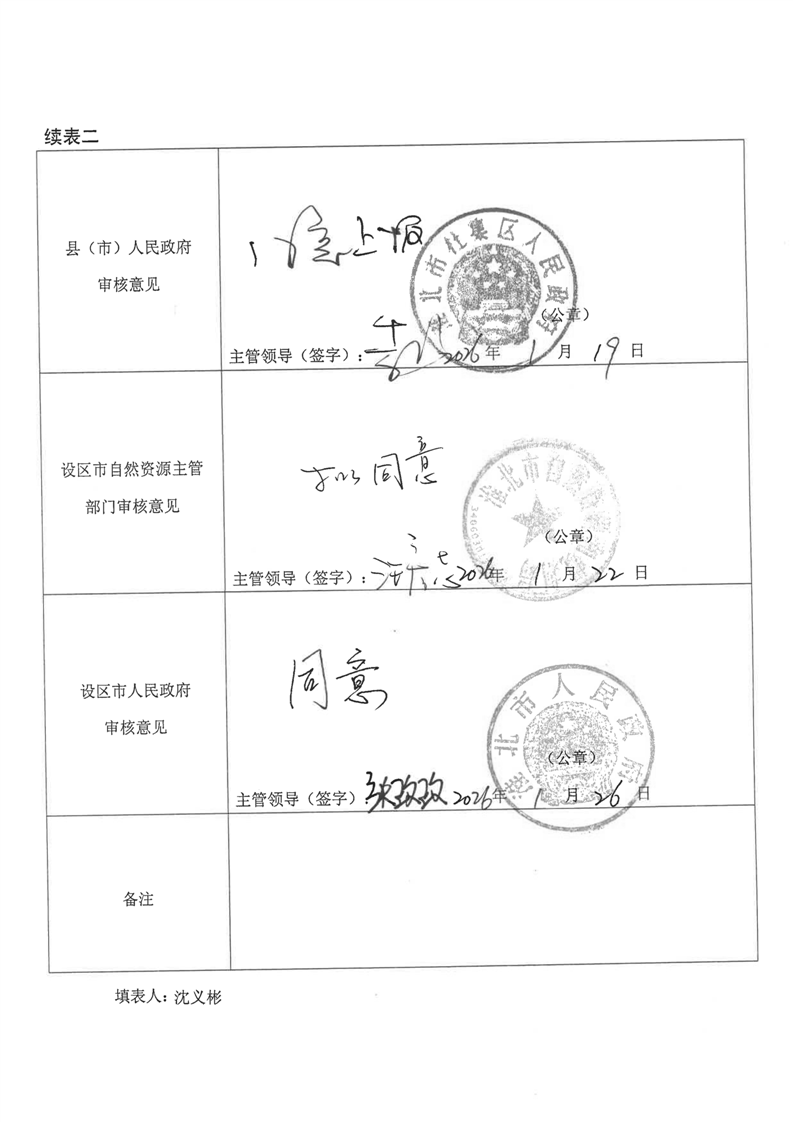 续表二
县（市）人民政府
审核意见
同意上报
淮北市杜集区人民政府
（公章）
主管领导（签字）： 2026年 1 月 19 日
设区市自然资源主管
部门审核意见
拟同意
淮北市自然资源和规划局
（公章）
主管领导（签字）： 2026年 1 月 22 日
设区市人民政府
审核意见
同意
淮北市人民政府
（公章）
主管领导（签字）： 2026年 1 月 26 日
备注
填表人：沈义彬